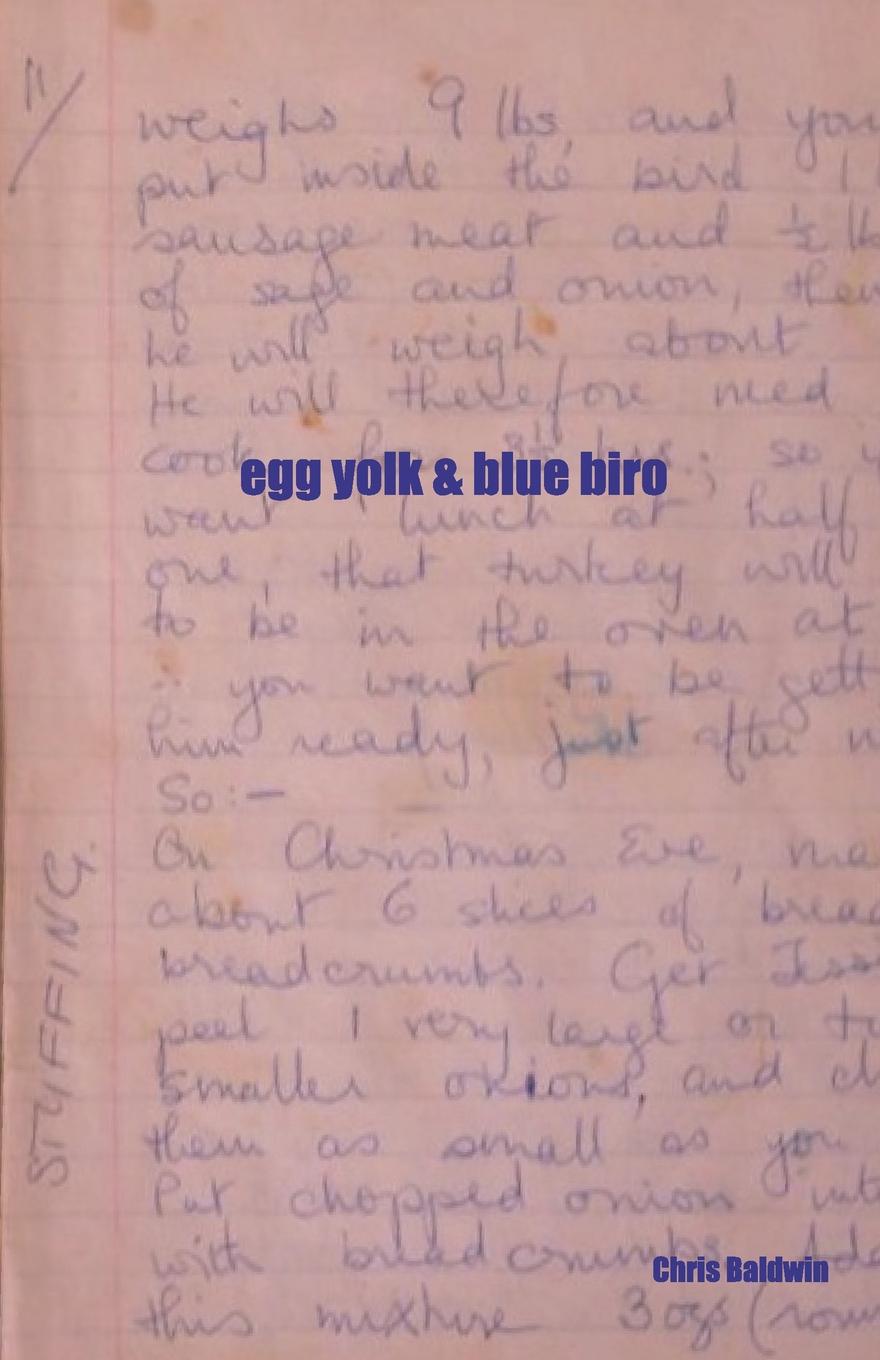 11/
weighs 9 lbs, and you
put inside the bird 1
sausage meat and ½ lb
of sage and onion, then
he will weigh about
He will therefore need
cook for hrs.; so
egg yolk & blue biro
want lunch at half
one, that turkey will
to be in the oven at
∴ you want to be gett
him ready, just after
So:—
On Christmas Eve, ma
about 6 slices of bread
breadcrumbs. Get Jessi
peel 1 very large or
smaller onions, and ch
them as small as you
Put chopped onion into
with breadcrumbs. Add
Chris Baldwin
this mixture 3 ozs (
STUFFING.